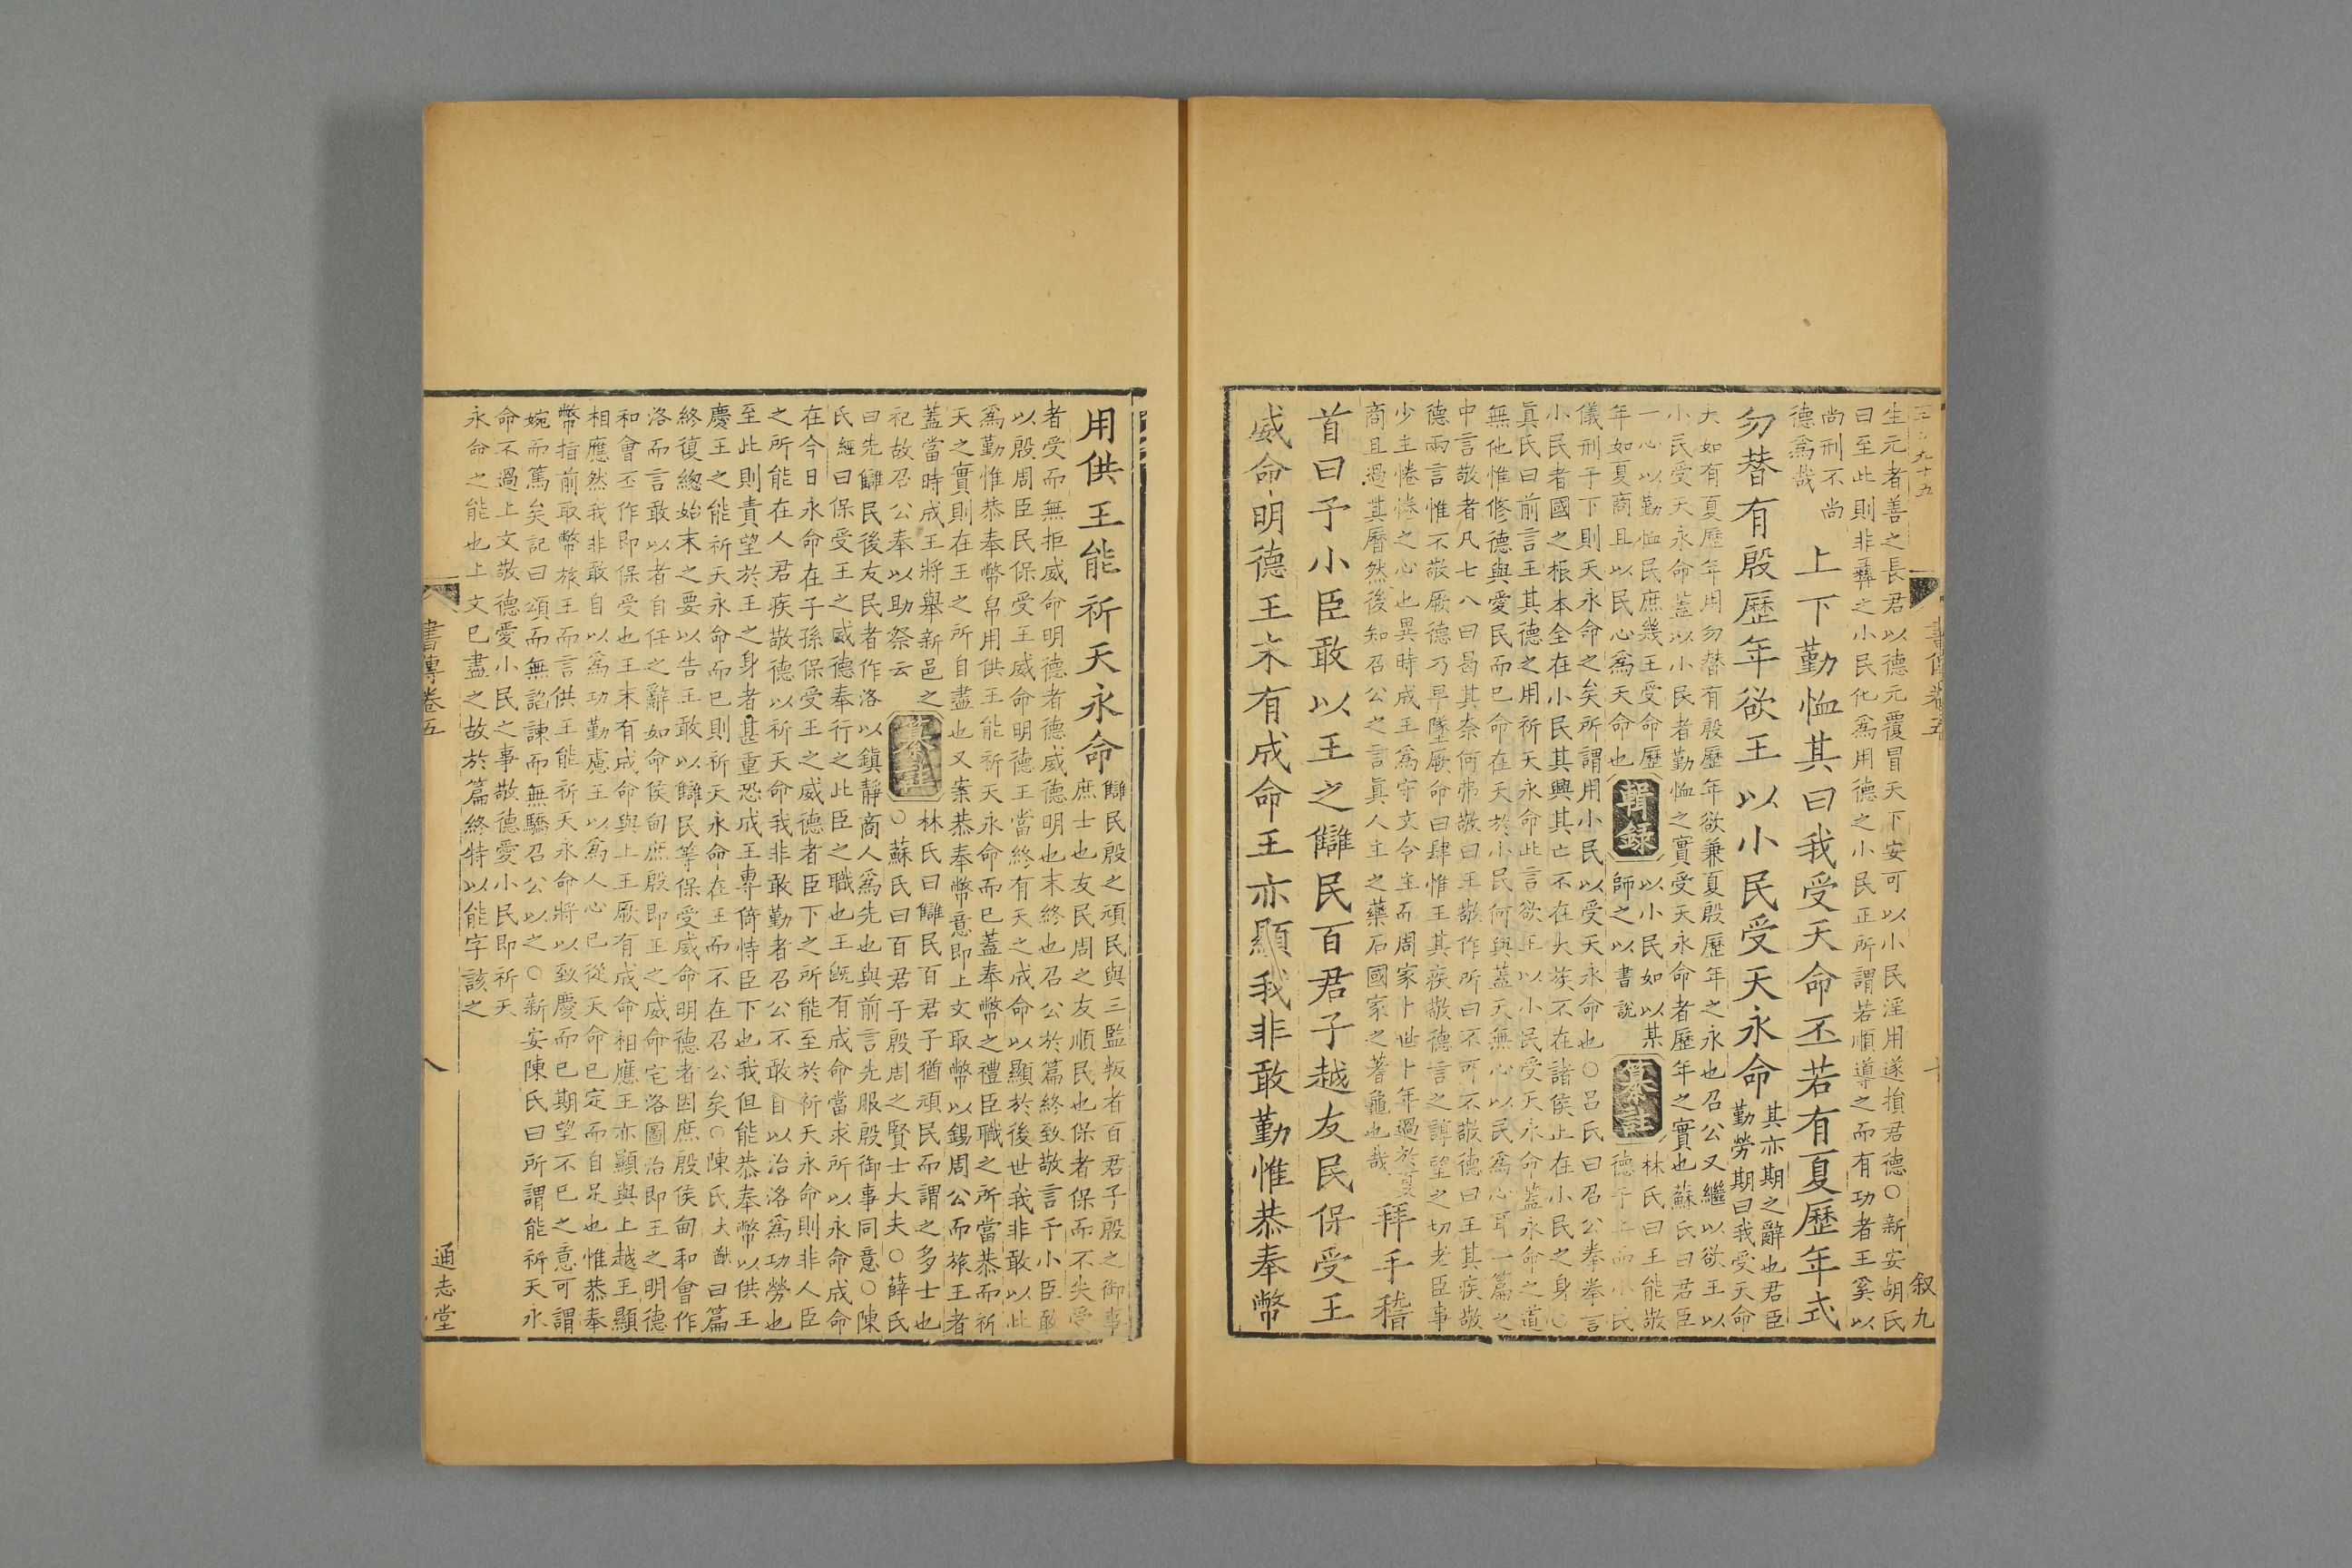 生元者善之長君以德元覆冒天下安可以小民淫用遂損君德○新安胡氏
曰至此則非彝之小民化爲用德之小民正所謂若順導之而有功者王奚以
尚刑不尚
德爲哉
上下勤恤其曰我受天命丕若有夏歷年式
勿替有殷歷年欲王以小民受天永命
其亦期之辭也君臣
勤勞期曰我受天命
大如有夏歷年用勿替有殷歷年欲兼夏殷歷年之永也召公又繼以欲王以
小民受天永命蓋以小民者勤恤之實受天永命者歷年之實也蘇氏曰君臣
一心以勤恤民庶幾王受命歷
年如夏商且以民心爲天命也
輯錄
以小民如以某
師之以書說
纂註
林氏曰王能敬
德于上而小民
儀刑于下則天永命之矣所謂用小民以受天永命也○呂氏曰召公拳拳言
小民者國之根本全在小民其興其亡不在大族不在諸侯止在小民之身○
眞氏曰前言王其德之用祈天永命此言欲王以小民受天永命蓋永命之道
無他惟修德與愛民而已命在天於小民何與蓋天無心以民爲心耳一篇之
中言敬者凡七八曰曷其奈何弗敬曰王敬作所曰不可不敬德曰王其疾敬
德兩言惟不敬厥德乃早墜厥命曰肆惟王其疾敬德言之諄望之切老臣事
少主惓惓之心也異時成王爲守文令主而周家卜世卜年過於夏
商且過其曆然後知召公之言眞人主之藥石國家之蓍龜也哉
拜手稽
首曰予小臣敢以王之讎民百君子越友民保受王
威命明德王末有成命王亦顯我非敢勤惟恭奉幣
書傳卷五
叙九
用供王能祈天永命
讎民殷之頑民與三監叛者百君子殷之御事
庶士也友民周之友順民也保者保而不失受
者受而無拒威命明德者德威德明也末終也召公於篇終致敬言予小臣敢
以殷周臣民保受王威命明德王當終有天之成命以顯於後世我非敢以此
爲勤惟恭奉幣帛用供王能祈天永命而已蓋奉幣之禮臣職之所當恭而祈
天之實則在王之所自盡也又案恭奉幣意即上文取幣以錫周公而旅王者
蓋當時成王將舉新邑之
祀故召公奉以助祭云
纂註
林氏曰讎民百君子猶頑民而謂之多士也
○蘇氏曰百君子殷周之賢士大夫○薛氏
曰先讎民後友民者作洛以鎮靜商人爲先也與前言先服殷御事同意○陳
氏經曰保受王之威德奉行之此臣之職也王旣有成命當求所以永命成命
在今日永命在子孫保受王之威德者臣下之所能至於祈天永命則非人臣
之所能在人君疾敬德以祈天命我非敢勤者召公不敢自以治洛爲功勞也
至此則責望於王之身者甚重恐成王專倚恃臣下也我但能恭奉幣以供王
慶王之能祈天永命而已則祈天永命在王而不在召公矣○陳氏大猷曰篇
終復總始末之要以告王敢以讎民等保受威命明德者因庶殷侯甸和會作
洛而言敢以者自任之辭如命侯甸庶殷即王之威命宅洛圖治即王之明德
和會丕作即保受也王末有成命與上王厥有成命相應王亦顯與上越王顯
相應然我非敢自以爲功勤慮王以爲人心已從天命已定而自足也惟恭奉
幣指前取幣旅王而言供王能祈天永命將以致慶而已期望不已之意可謂
婉而篤矣記曰頌而無諂諫而無驕召公以之○新安陳氏曰所謂能祈天永
命不過上文敬德愛小民之事敬德愛小民即祈天
永命之能也上文已盡之故於篇終特以能字該之
書傳卷五
八
通志堂